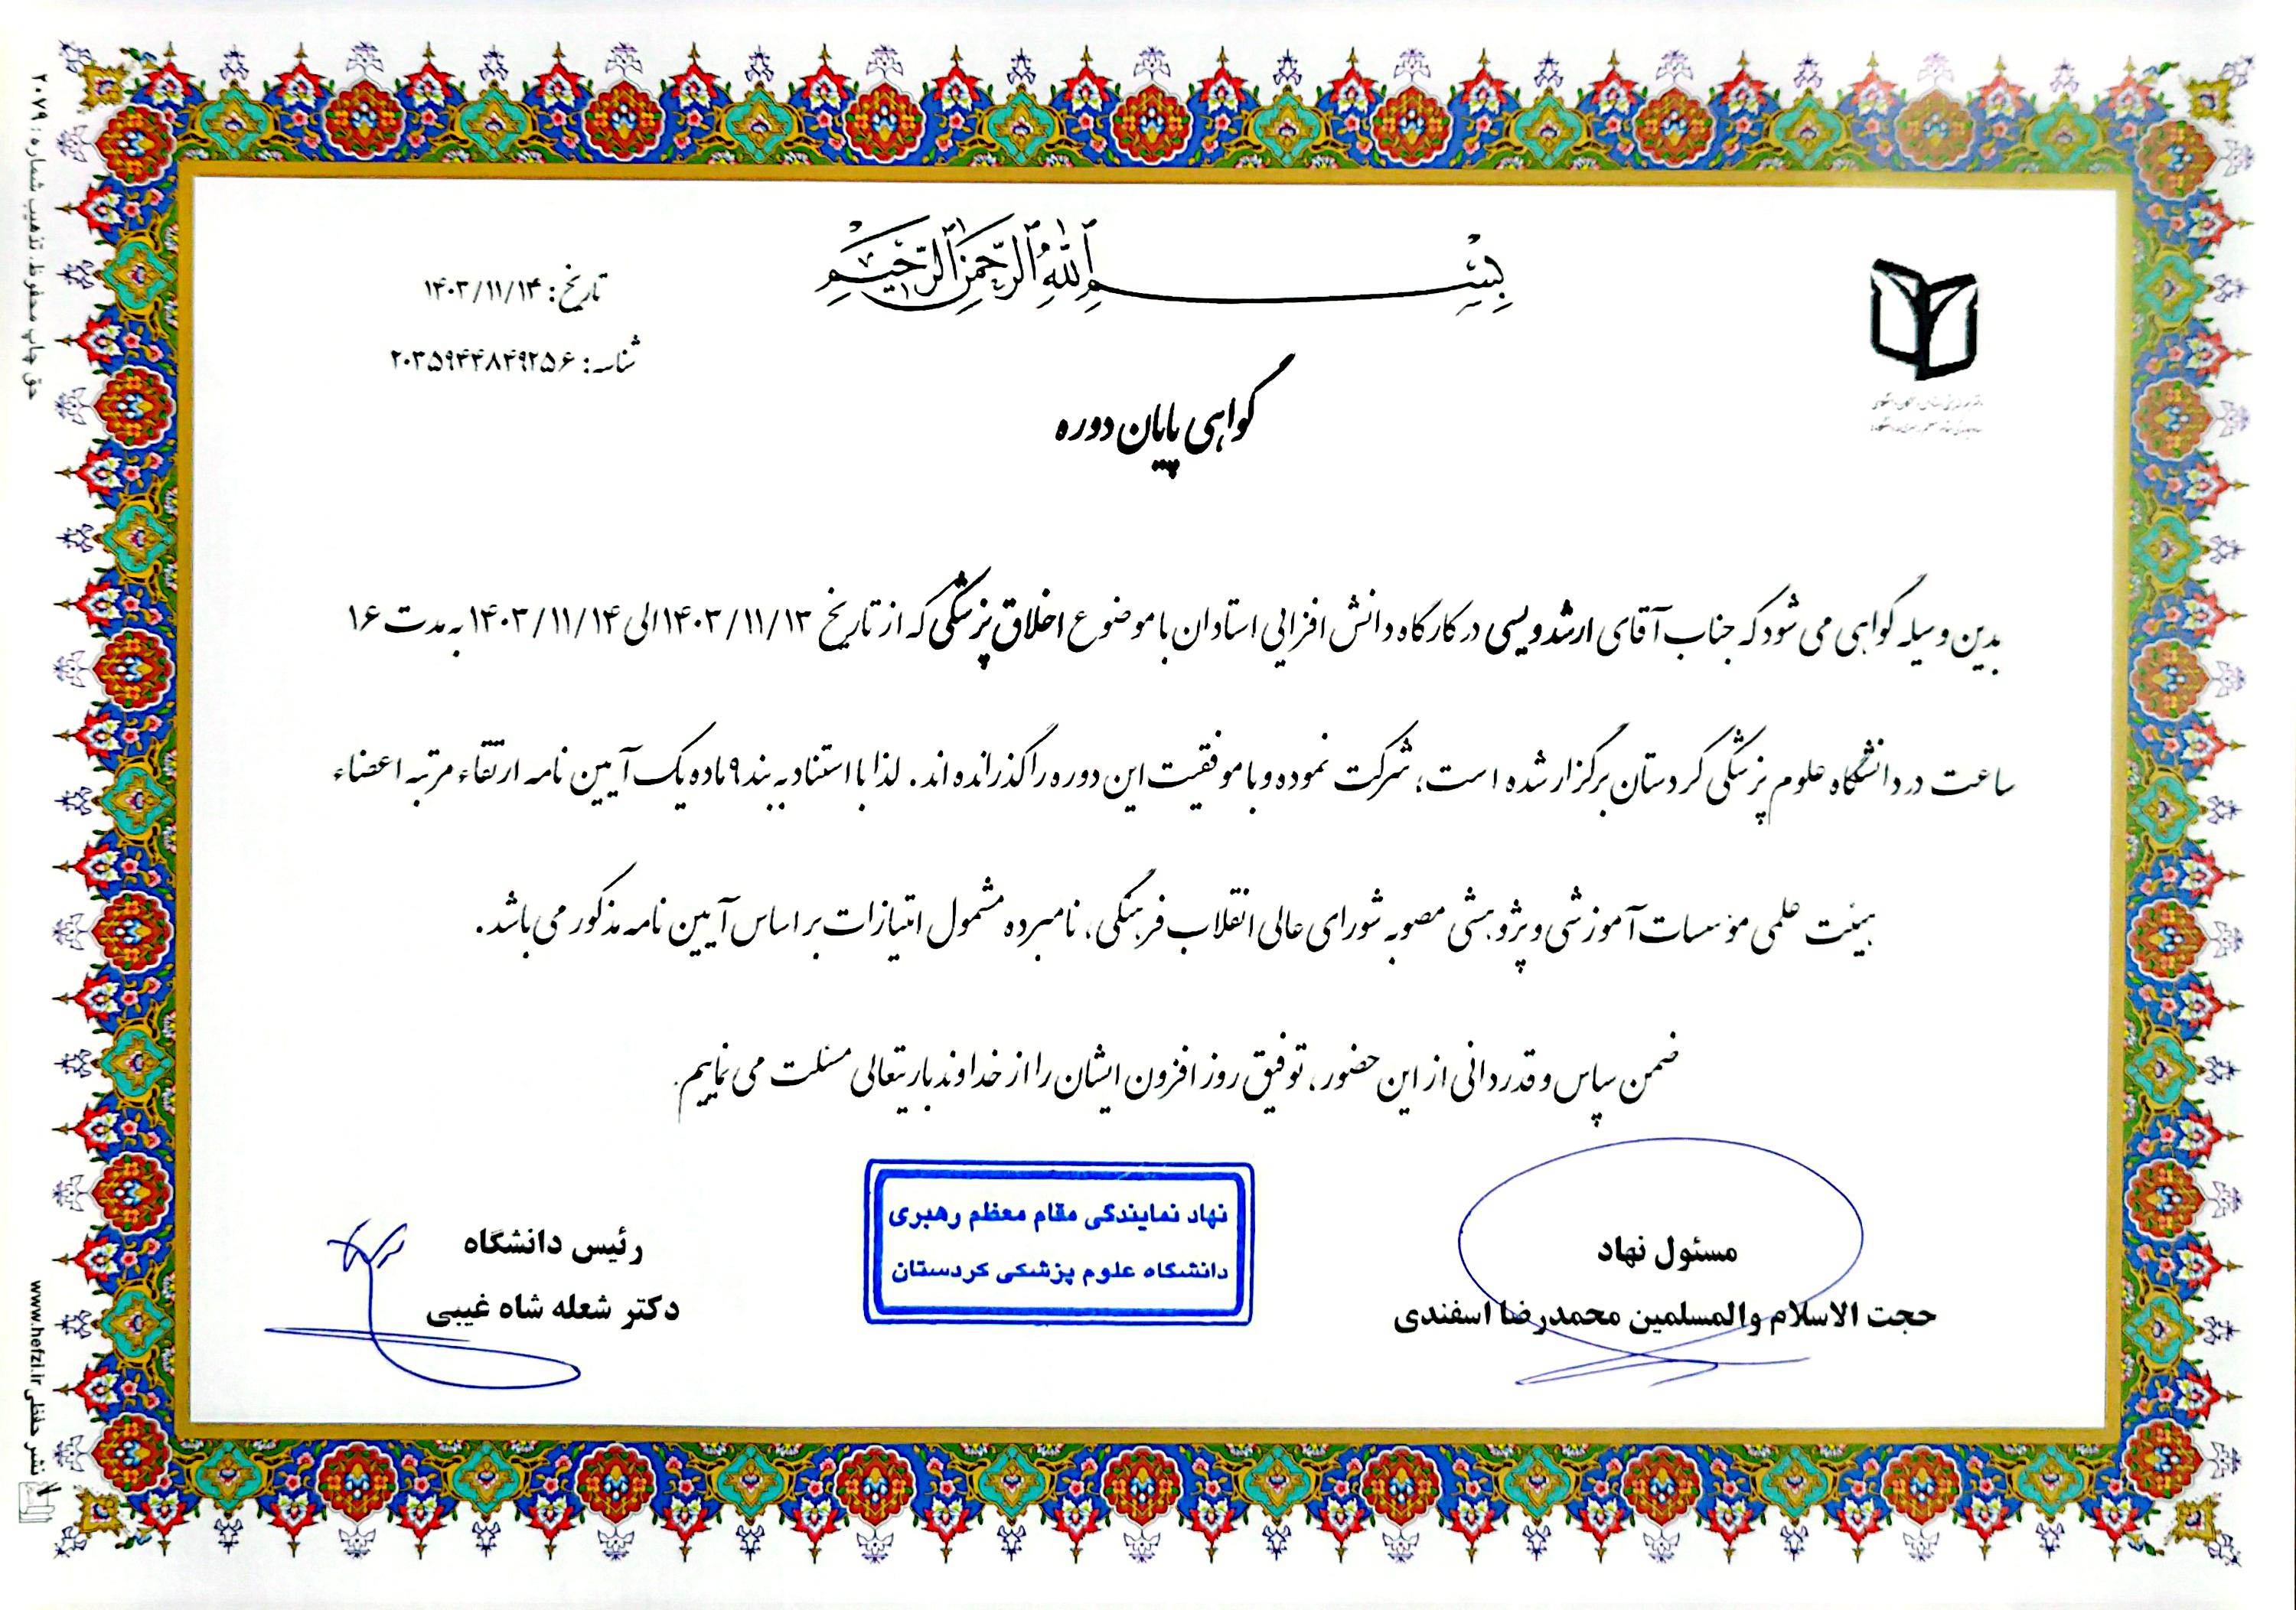 بِسْمِ ٱللَّٰهِ ٱلرَّحْمَٰنِ ٱلرَّحِيمِ
تاریخ: ۱۴۰۳/۱۱/۱۴
شناسه: ۲۰۳۵۹۴۴۸۴۹۲۵۶
گواهی پایان دوره
بدین وسیله گواهی می شود که جناب آقای ارشد ویسی در کارگاه دانش افزایی استادان با موضوع اخلاق پزشکی که از تاریخ ۱۴۰۳/۱۱/۱۳ الی ۱۴۰۳/۱۱/۱۴ به مدت ۱۶
ساعت در دانشگاه علوم پزشکی کردستان برگزار شده است، شرکت نموده و با موفقیت این دوره را گذرانده اند. لذا با استناد به بند ۹ ماده یک آیین نامه ارتقاء مرتبه اعضاء
هیئت علمی مؤسسات آموزشی و پژوهشی مصوبه شورای عالی انقلاب فرهنگی، نامبرده مشمول امتیازات بر اساس آیین نامه مذکور می باشد.
ضمن سپاس و قدردانی از این حضور، توفیق روز افزون ایشان را از خداوند باریتعالی مسئلت می نماییم.
مسئول نهاد
حجت الاسلام والمسلمین محمدرضا اسفندی
نهاد نمایندگی مقام معظم رهبری
دانشگاه علوم پزشکی کردستان
رئیس دانشگاه
دکتر شعله شاه غیبی
حق چاپ محفوظ. تذهیب شماره: ۲۰۷۹
نشر حفظی www.hefzi.ir